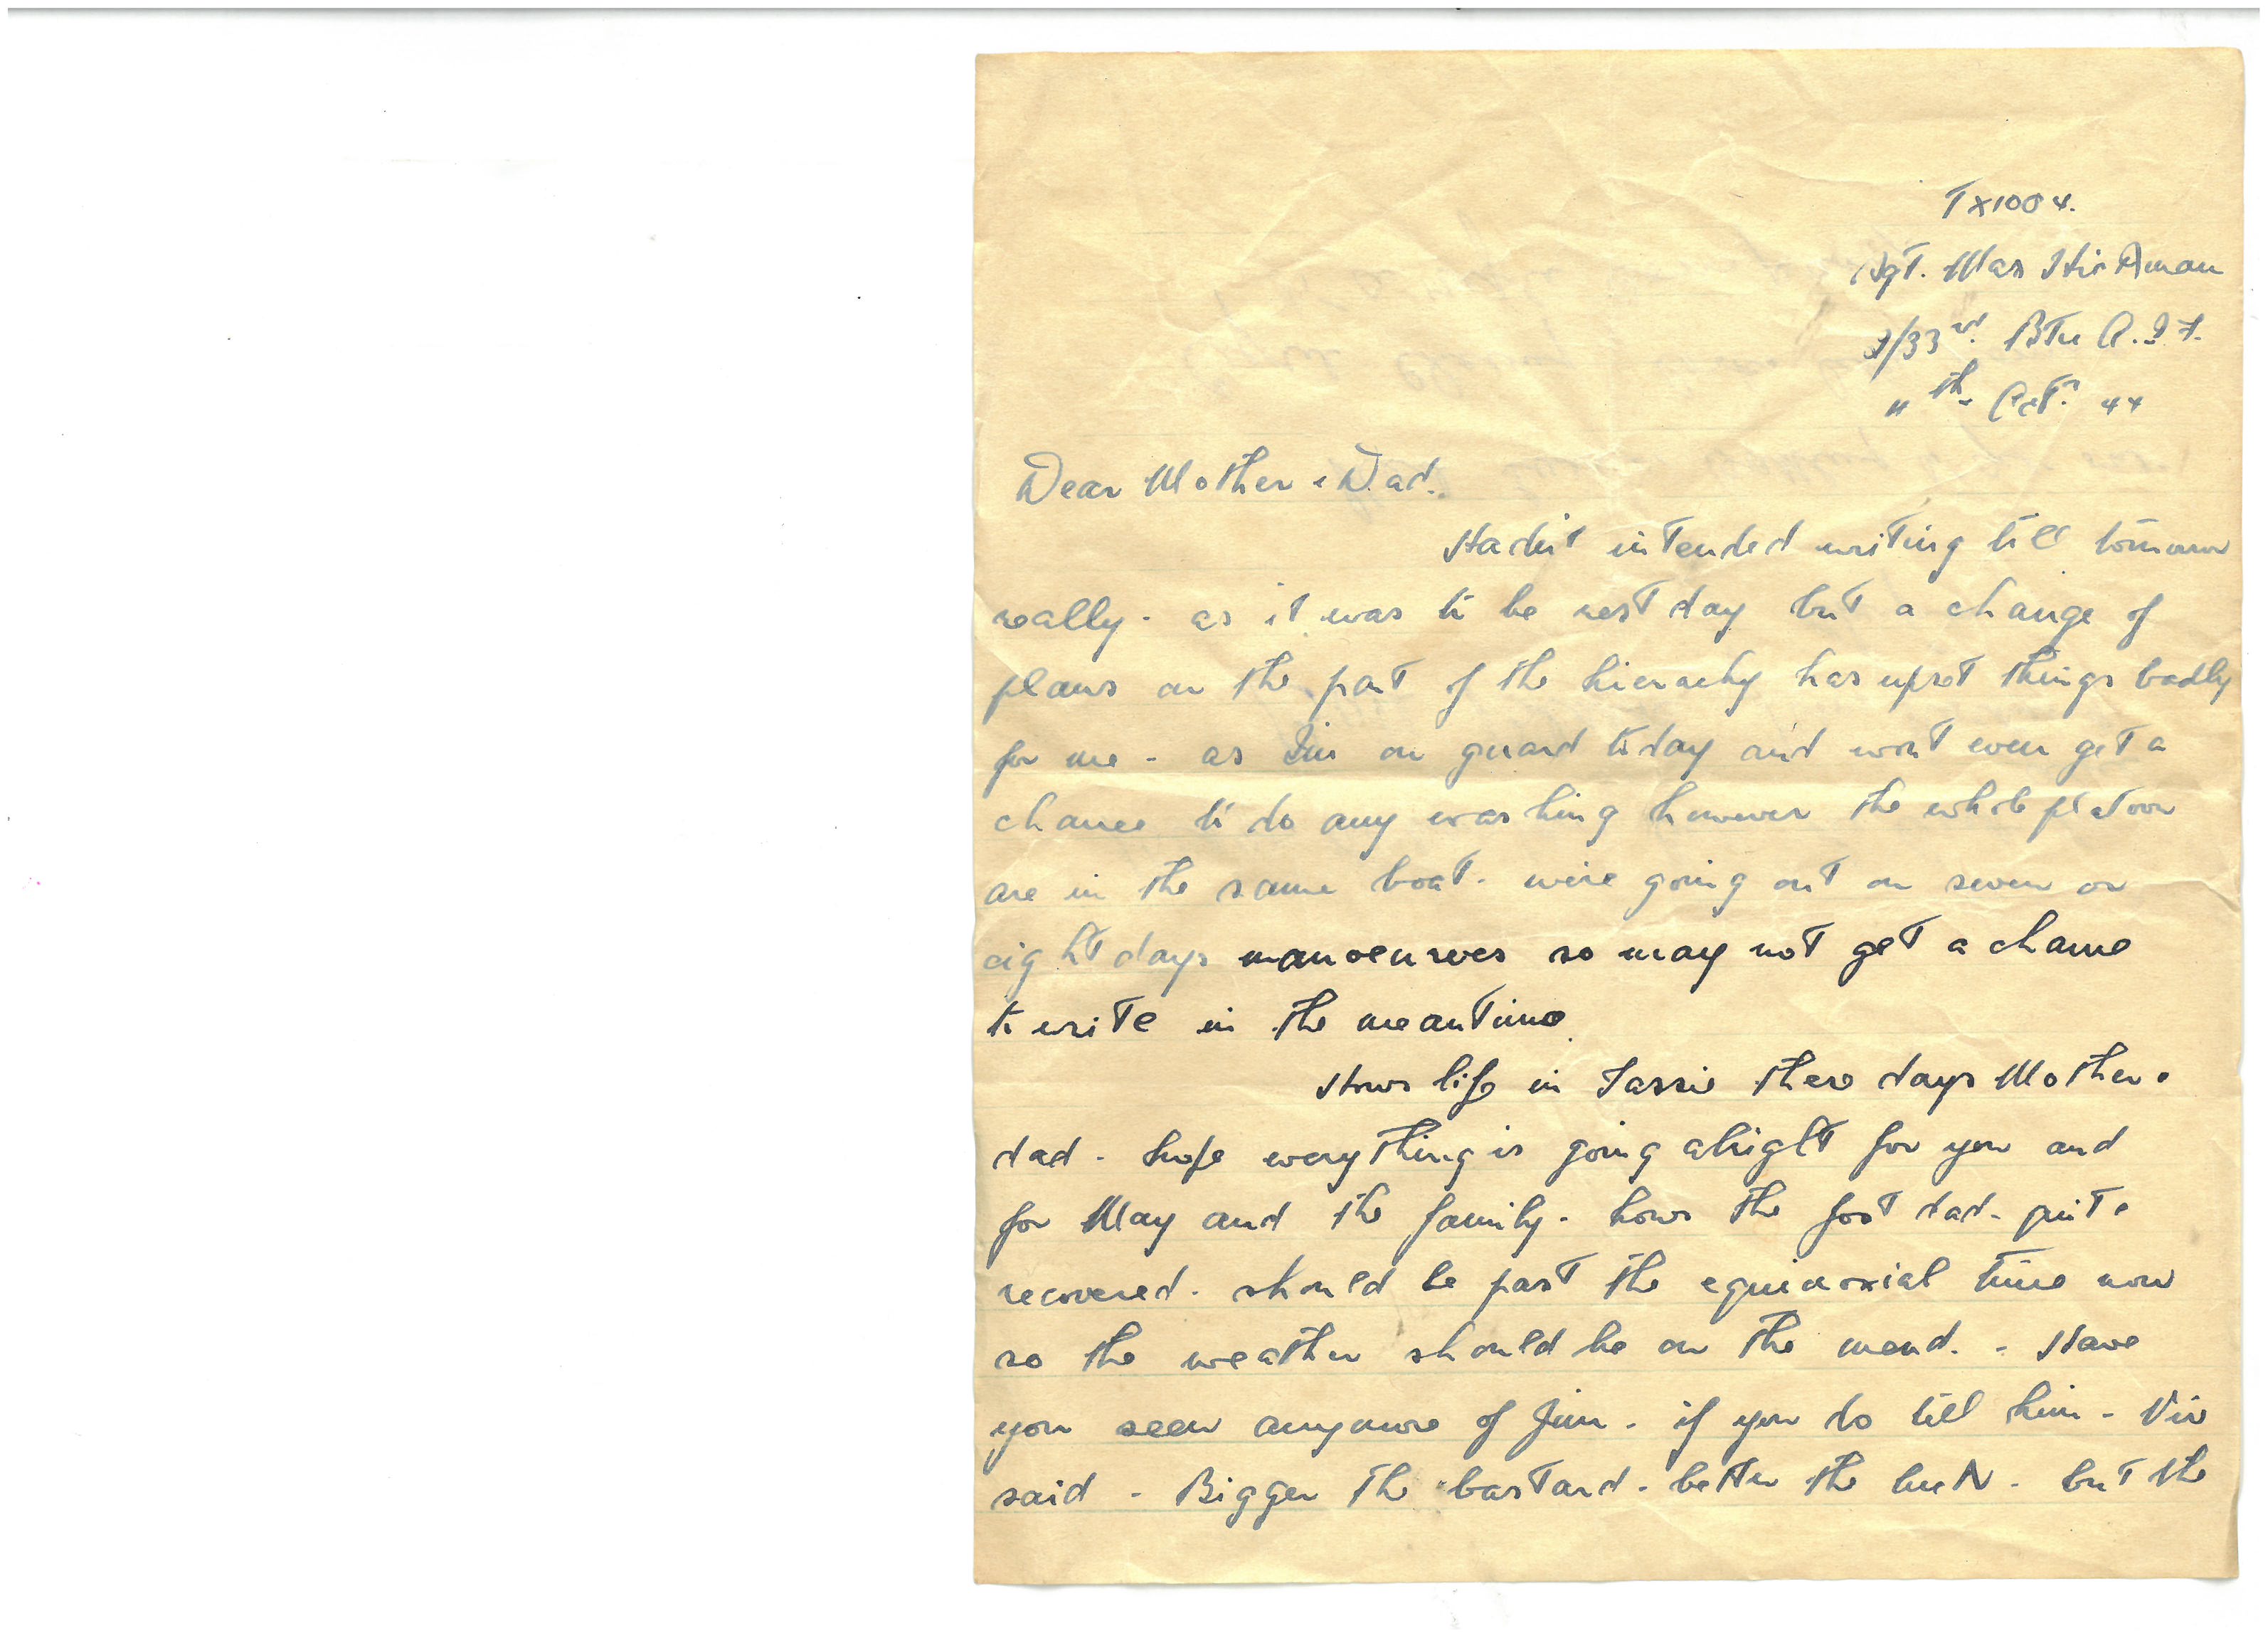 TX1004.
Sgt. Max Hickman
2/33rd. Btn A.I.F.
11th. Oct. 44
Dear Mother & Dad.
Hadn't intended writing till tomorrow
really - as it was to be rest day but a change of
plans on the part of the hierachy has upset things badly
for me - as I'm on guard today and wont even get a
chance to do any washing however the whole platoon
are in the same boat. we're going out on seven or
eight days manoeurves so may not get a chance
to write in the meantime.
Hows life in Tassie these days Mother &
dad - hope everything is going alright for you and
for May and the family - hows the foot dad - quite
recovered. should be past the equinoxial time now
so the weather should be on the mend. - Have
you seen anymore of Jim - if you do tell him - Viv
said - Bigger the bastard - better the luck - but the